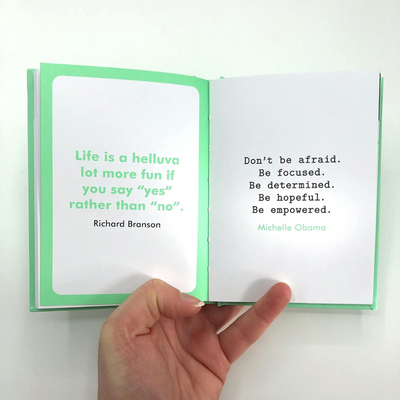 Life is a helluva
lot more fun if
you say “yes”
rather than “no”.
Richard Branson
Don't be afraid.
Be focused.
Be determined.
Be hopeful.
Be empowered.
Michelle Obama